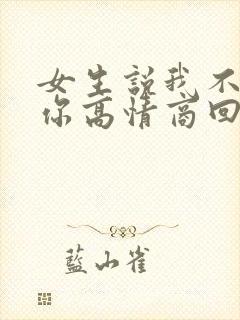 女生说我不
你高情商回
藍山雀